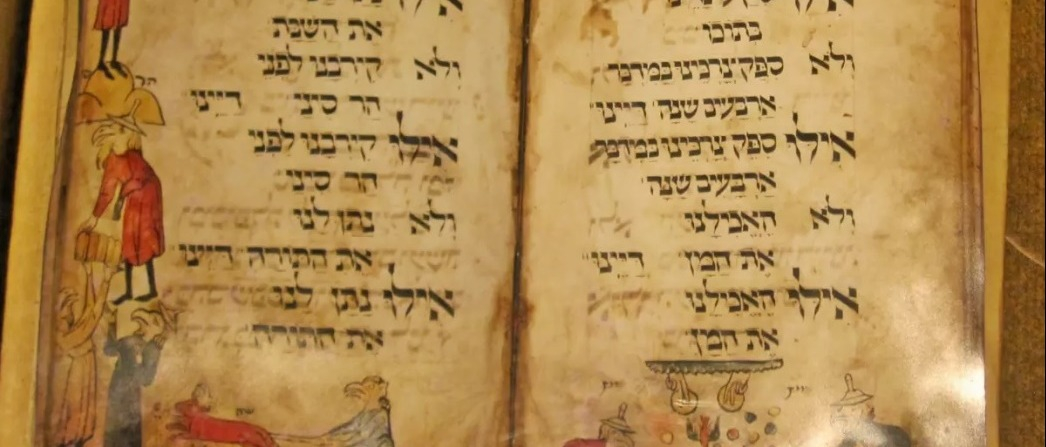 בתוכו
ולא ספק צרכינו במדבר
ארבעים שנה דיינו
אילו ספק צרכינו במדבר
ארבעים שנה
ולא האכילנו
את המן דיינו
אילו האכילנו
את המן
את השבת
ולא קירבנו לפני
הר סיני דיינו
אילו קירבנו לפני
הר סיני
ולא נתן לנו
את התורה דיינו
אילו נתן לנו
את התורה